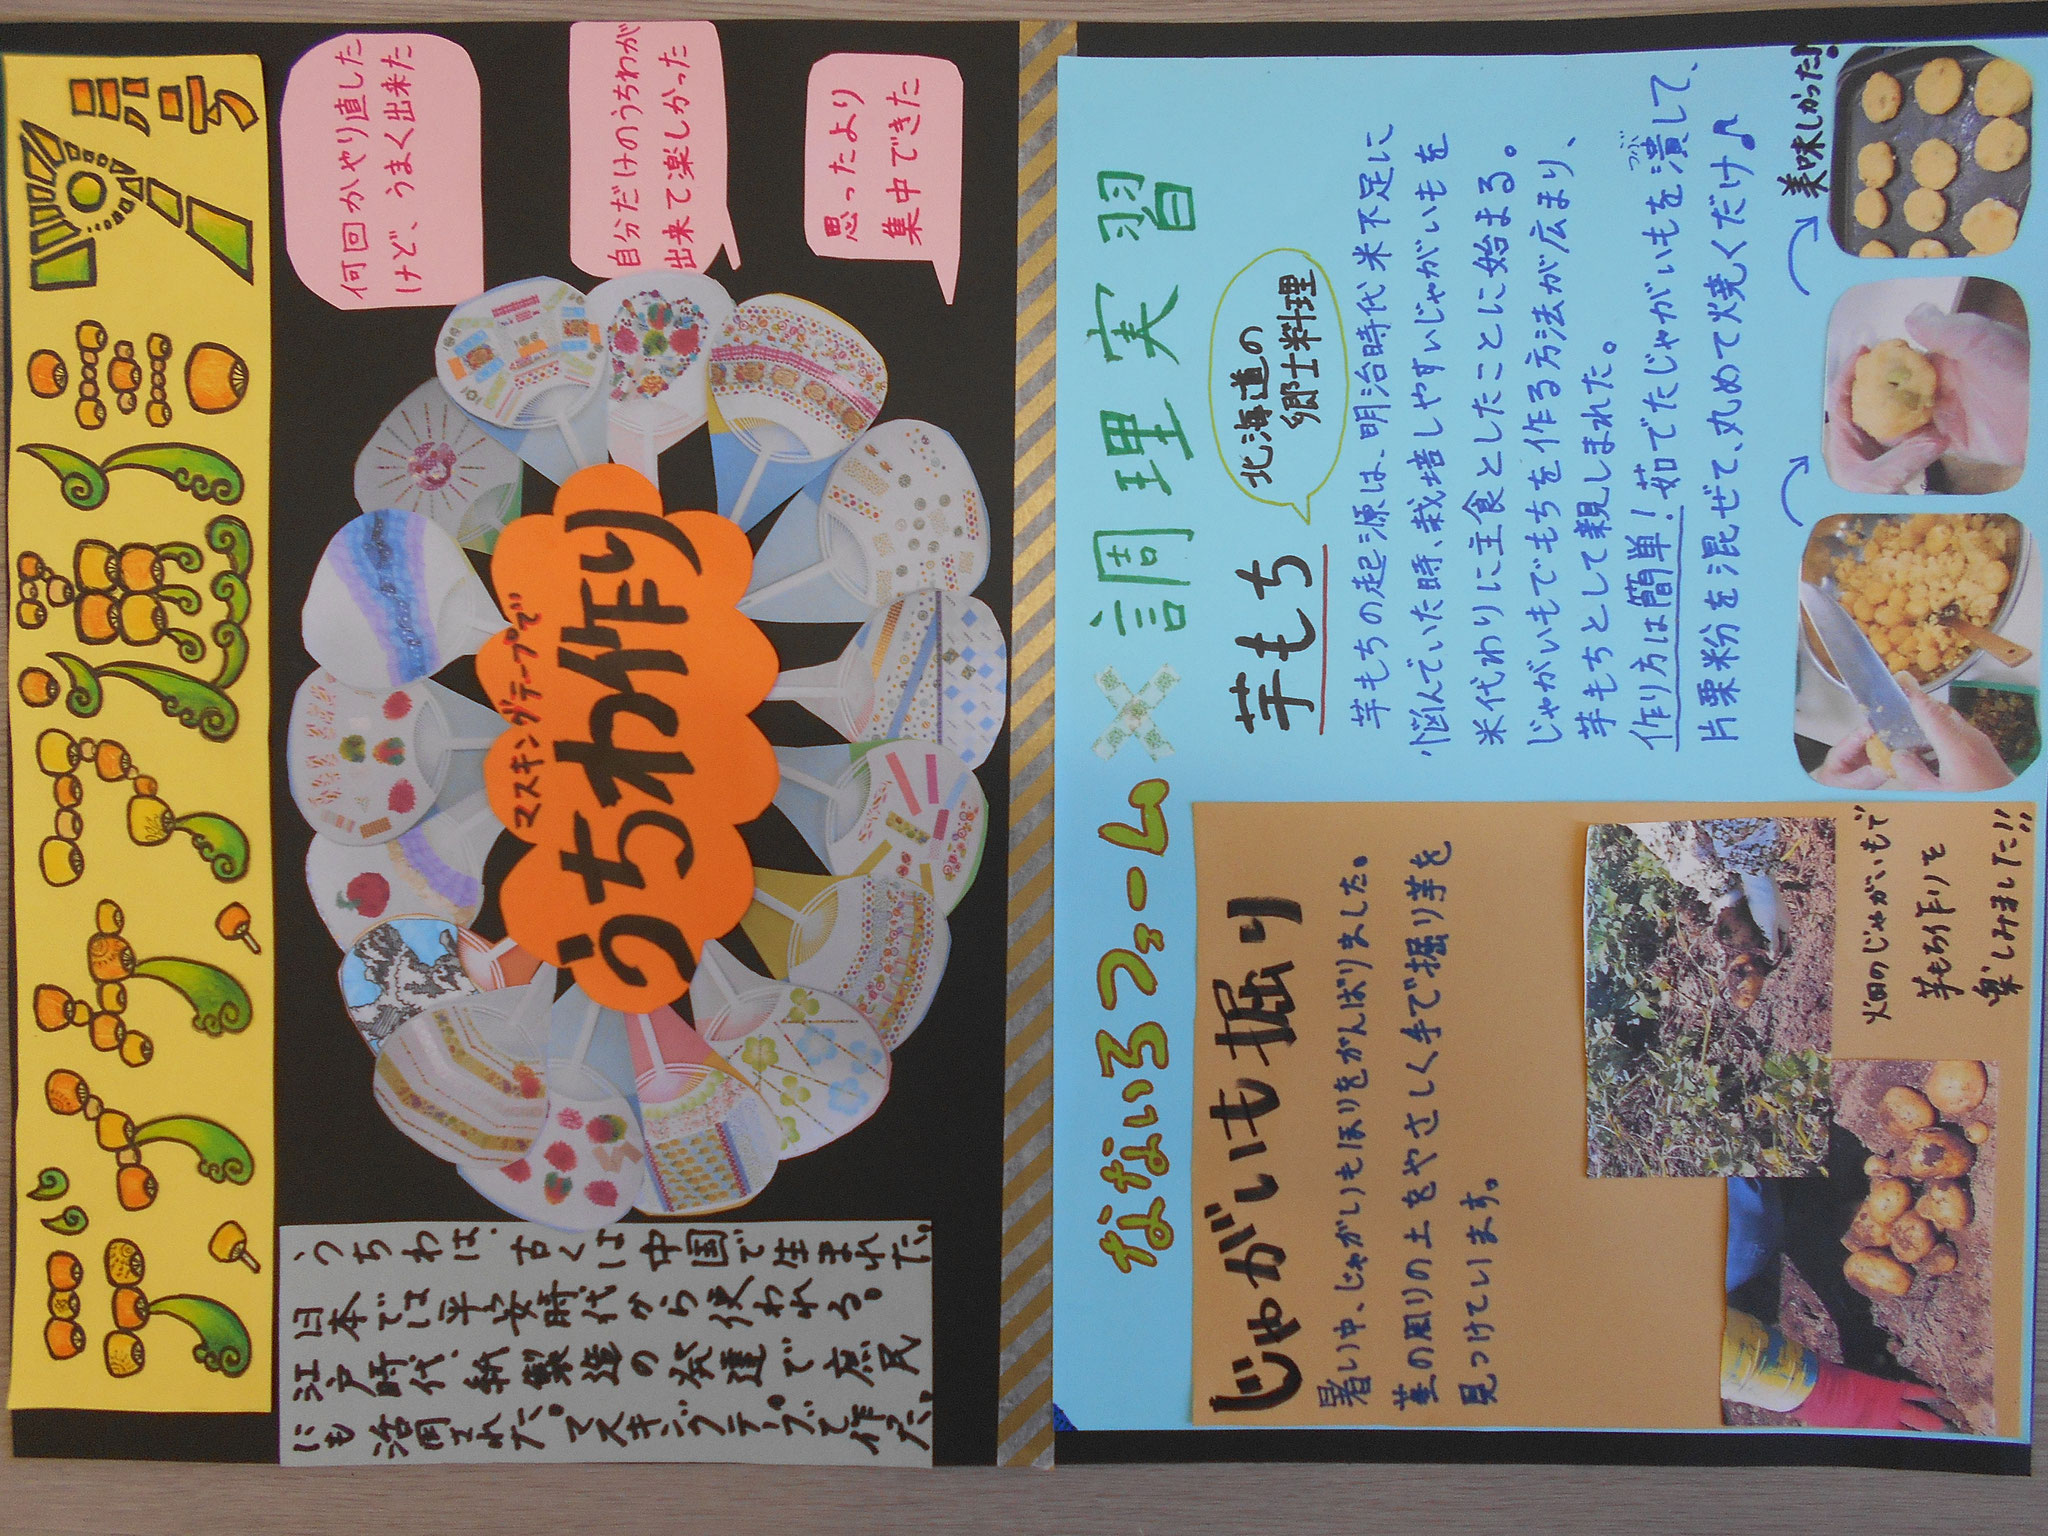 マスキングテープで
うちわ作り
うちわは、古くは中国で生まれた。
日本では平安時代から使われる。
江戸時代、紙製造の発達で庶民
にも活用された。マスキングテープで作った。
何回かやり直した
けど、うまく出来た
自分だけのうちわが
出来て楽しかった
思ったより
集中できた
なないろファーム×調理実習
じゃがいも掘り
暑い中、じゃがいもほりをがんばりました。
茎の周りの土をやさしく手で掘り芋を
見つけています。
畑のじゃがいもで
芋もち作りを
楽しみました!!
芋もち
北海道の
郷土料理
芋もちの起源は、明治時代米不足に
悩んでいた時、栽培しやすいじゃがいもを
米代わりに主食としたことに始まる。
じゃがいもでもちを作る方法が広まり、
芋もちとして親しまれた。
作り方は簡単!茹でたじゃがいもを潰つぶして、
片栗粉を混ぜて、丸めて焼くだけ♪
美味しかった♪